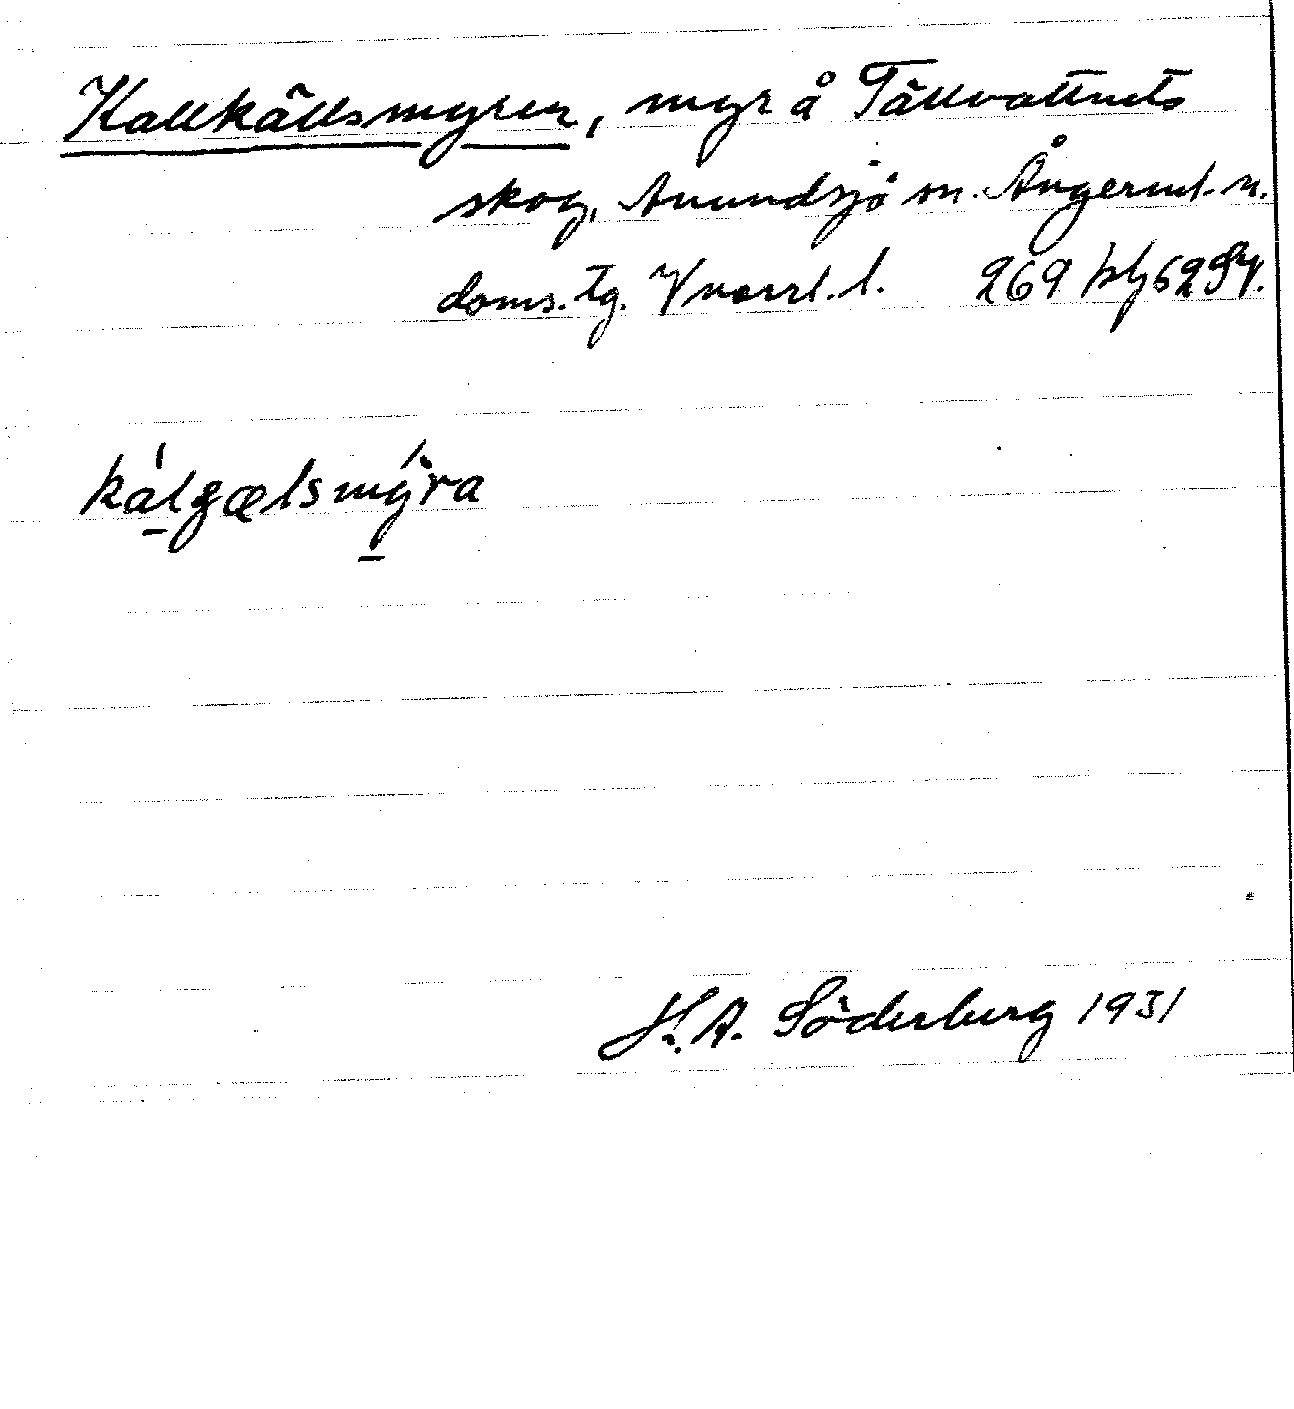 Kallkällsmyren, myr å Tällvattnets
skog, Anundsjö sn. Ångerml. n.
doms. tg. V norrl. l. 269
kálgælsmýra
H. A. Söderberg 1931